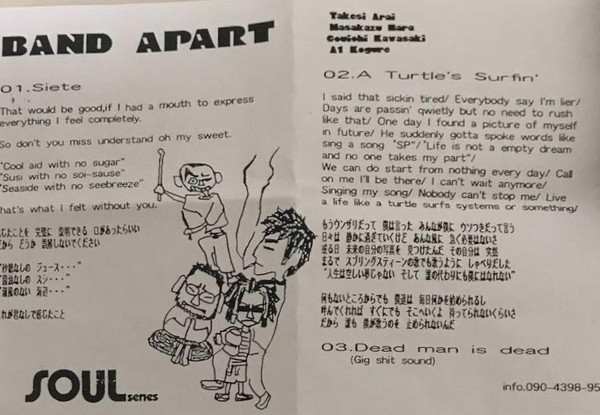 BAND APART
01.Siete
That would be good,if I had a mouth to express
everything I feel completely.
So don't you miss understand oh my sweet.
"Cool aid with no sugar"
"Susi with no soi-sause"
"Seaside with no seebreeze"
That's what I felt without you.
じたことを 完璧に 説明できる 口があったらいい
だから どうか 誤解しないでください
"砂糖なしの ジュース・・・"
"醤油なしの スシ・・・"
"潮風のない 海辺・・・"
れが君なしで感じたこと
SOUL series
Takesi Arai
Masakazu Hara
Couichi Kawasaki
A1 Kogure
02.A Turtle's Surfin'
I said that sickin tired/ Everybody say I'm lier/
Days are passin' qwietly but no need to rush
like that/ One day I found a picture of myself
in future/ He suddenly gotta spoke words like
sing a song "SP"/"Life is not a empty dream
and no one takes my part"/
We can do start from nothing every day/ Call
on me I'll be there/ I can't wait anymore/
Singing my song/ Nobody can't stop me/ Live
a life like a turtle surfs systems or something/
もうウンザリだって 僕は言った みんなが僕に ウソつきだって言う
日々は 静かに過ぎていくけど あんな風に 急ぐ必要はないさ
或る日 未来の自分の写真を 見つけたんだ その自分は 突然
まるで スプリングスティーンの歌でも歌うように しゃべりだした
"人生は空しい夢じゃない そして 誰の代わりにも僕にはなれない"
何もないところからでも 僕達は 毎日何かを始められるし
呼んでくれれば すぐにでも そこへいくよ 待ってられないくらいさ
だから 誰も 僕が歌うのを 止められないんだ
03.Dead man is dead
(Gig shit sound)
info.090-4398-95